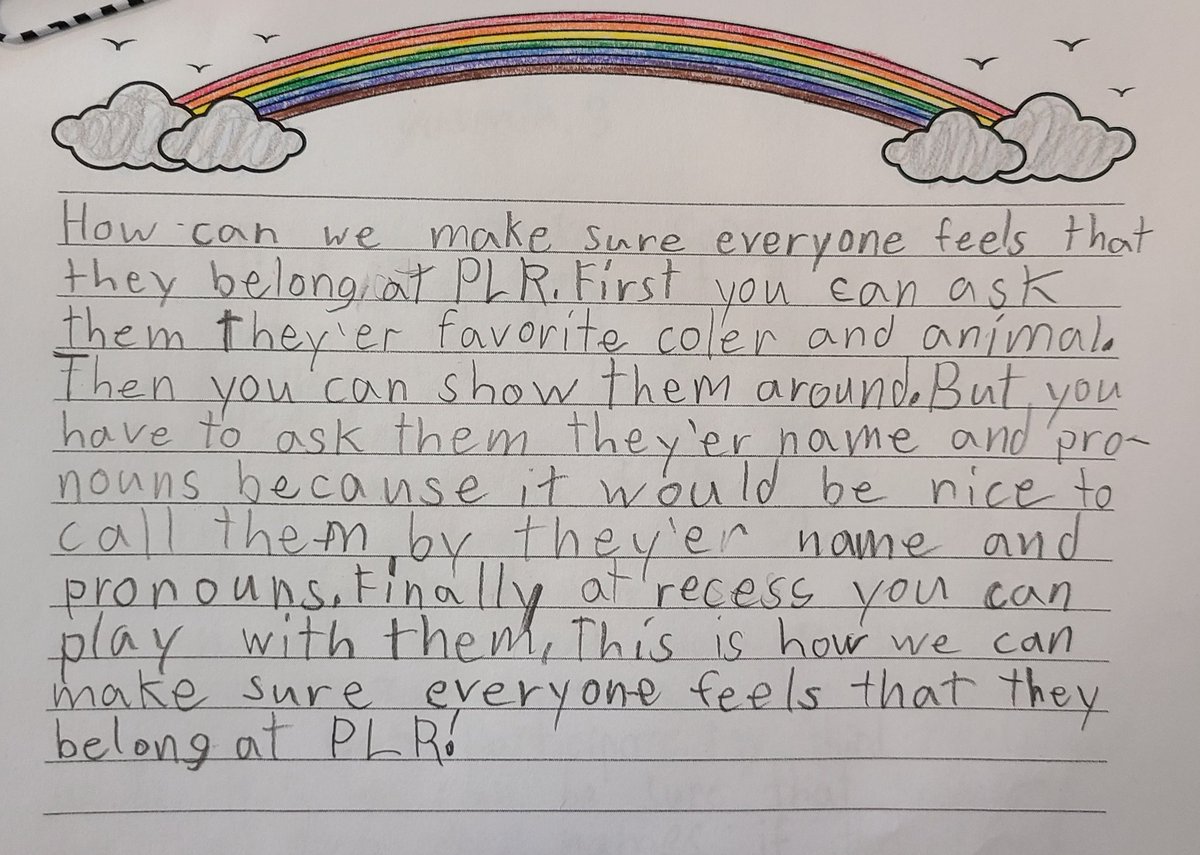 How can we make sure everyone feels that
they belong at PLR. First you can ask
them they'er favorite coler and animal.
Then you can show them around. But you
have to ask them they'er name and pro-
nouns because it would be nice to
call them by they'er name and
pronouns. Finally at recess you can
play with them. This is how we can
make sure everyone feels that they
belong at PLR!